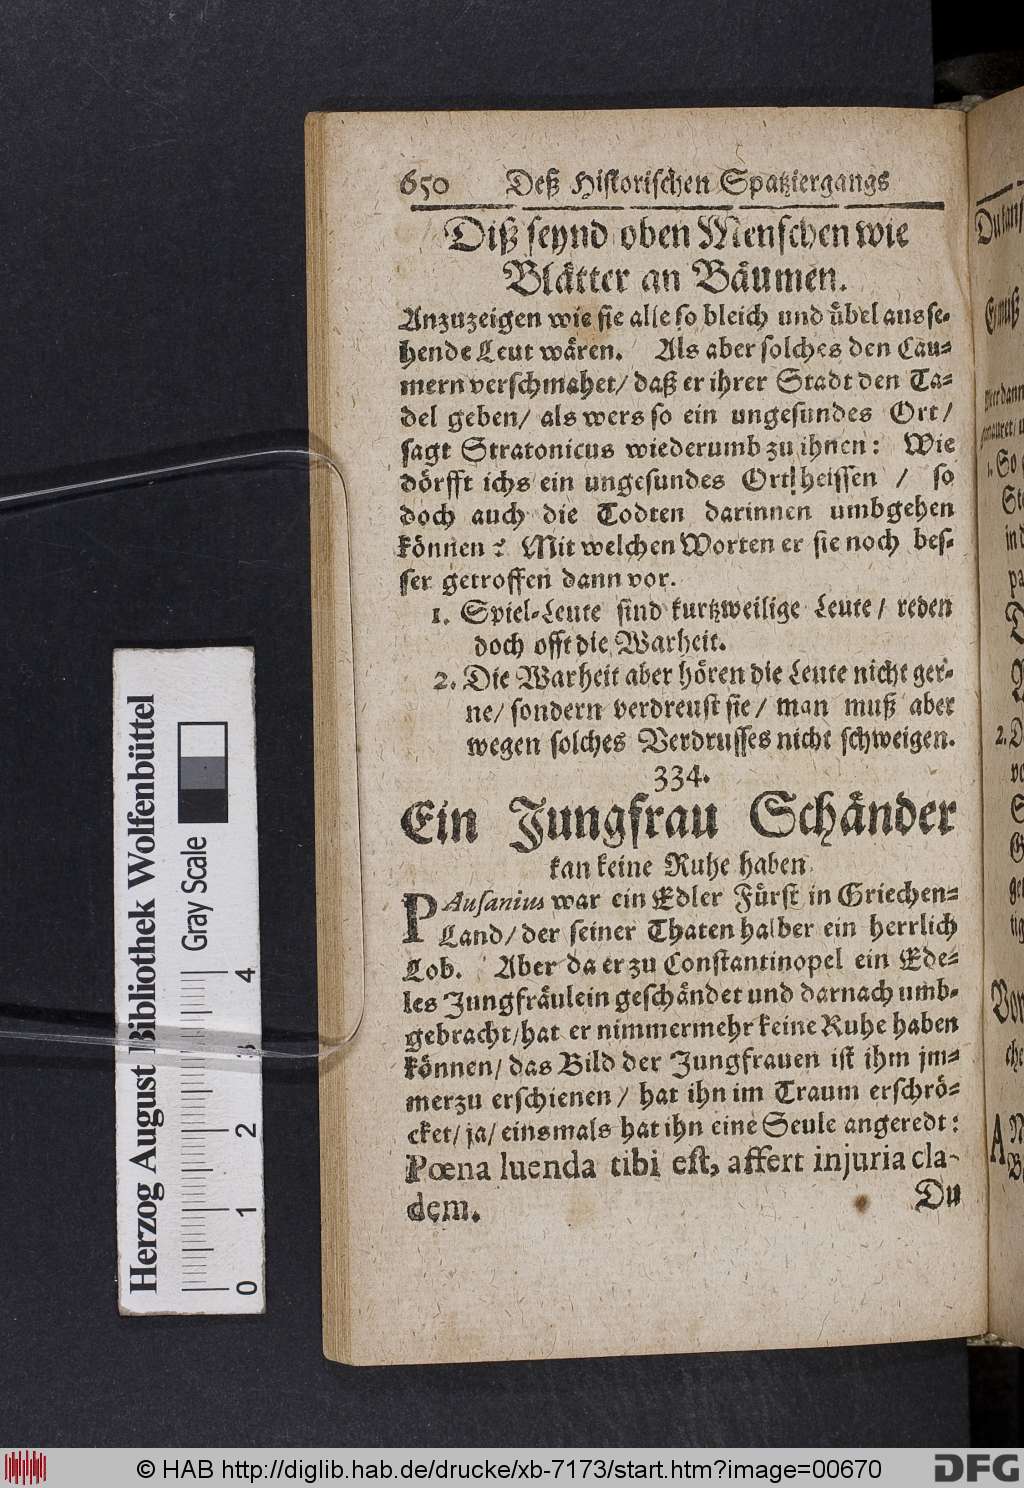 650 Deß Historischen Spatziergangs
Diß seynd oben Menschen wie
Blätter an Bäumen.
Anzuzeigen wie sie alle so bleich und übel ausse-
hende Leut wären. Als aber solches den Cau-
mern verschmahet/ daß er ihrer Stadt den Ta-
del geben/ als wers so ein ungesundes Ort/
sagt Stratonicus wiederumb zu ihnen: Wie
dörfft ichs ein ungesundes Ort heissen / so
doch auch die Todten darinnen umbgehen
können? Mit welchen Worten er sie noch bes-
ser getroffen dann vor.
1. Spiel-Leute sind kurtzweilige Leute/ reden
doch offt die Warheit.
2. Die Warheit aber hören die Leute nicht ger-
ne/ sondern verdreust sie/ man muß aber
wegen solches Verdrusses nicht schweigen.
334.
Ein Jungfrau Schänder
kan keine Ruhe haben.
PAusanius war ein Edler Fürst in Griechen-
Land/ der seiner Thaten halber ein herrlich
Lob. Aber da er zu Constantinopel ein Ede-
les Jungfräulein geschändet und darnach umb-
gebracht/ hat er nimmermehr keine Ruhe haben
können/ das Bild der Jungfrauen ist ihm jm-
merzu erschienen / hat ihn im Traum erschrö-
cket/ ja/ einsmals hat ihn eine Seule angeredt:
Pœna luenda tibi est, affert injuria cla-
dem.
Du
Herzog August Bibliothek Wolfenbüttel
Gray Scale
0 1 2 3 4
© HAB http://diglib.hab.de/drucke/xb-7173/start.htm?image=00670
DFG